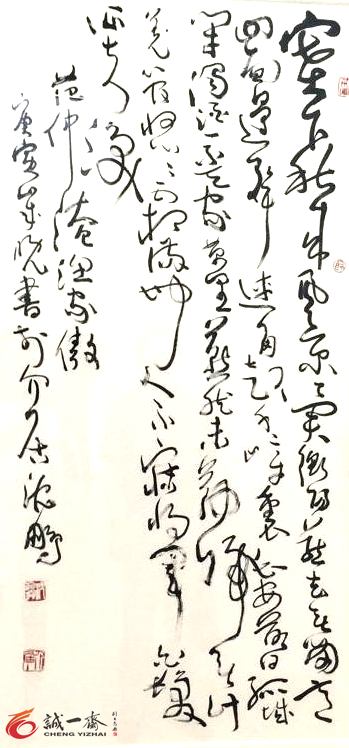 塞下秋来風景異衡陽雁去無留意
四面邊聲連角起千嶂裏長煙落日孤城
閉濁酒一杯家萬里燕然未勒歸無計
羌管悠悠霜滿地人不寐將軍白髮
征夫淚
范仲淹漁家傲
庚寅歲晚書於介居沈鵬
誠一齋
CHENG YIZHAI